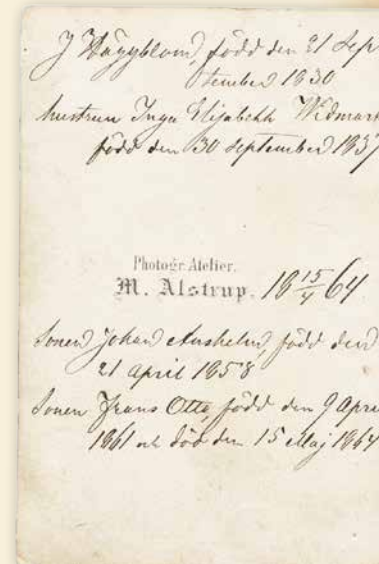 J Häggblom, född den 21 Sep-
tember 1830
hustrun Inga Elisabeth Widmark
född den 30 September 183
Photogr. Atelier.
M. Alstrup. 18 15/4 64
Sonen Johan Anshelm, född den
21 april 1858
Sonen Frans Otto, född den 9 Apri
1861 och död den 15 Maj 1864